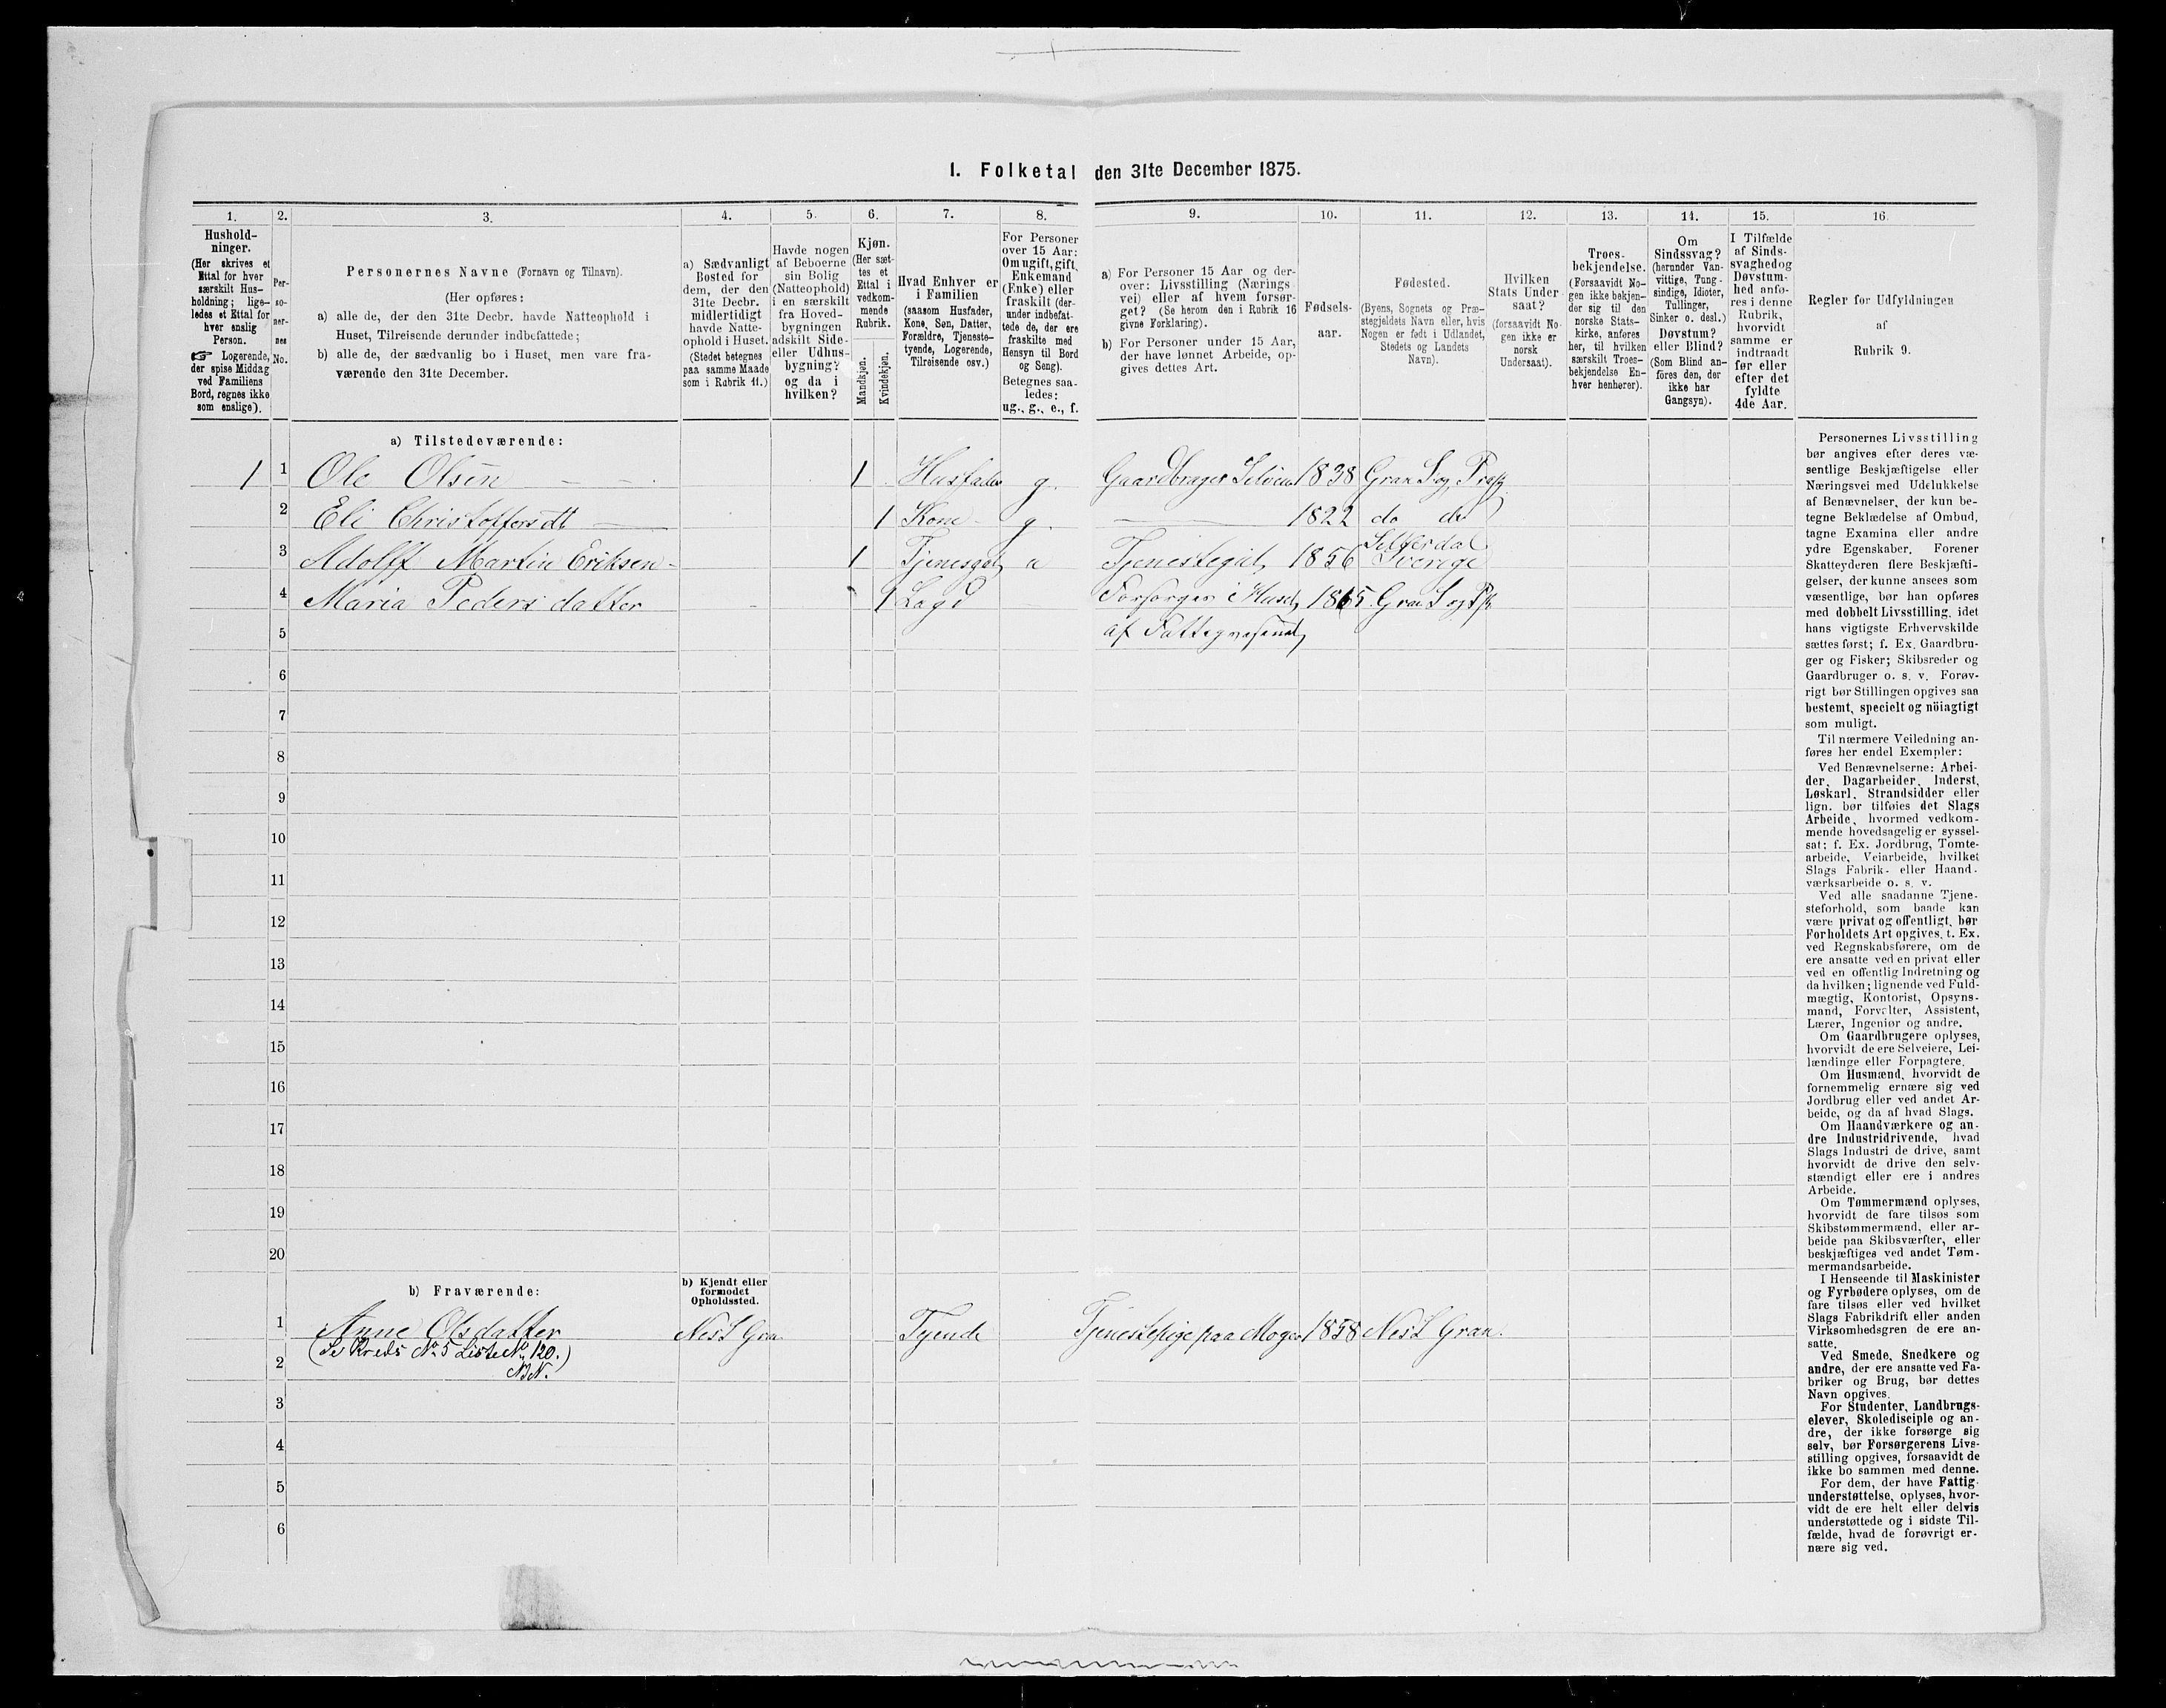 I. Folketal den 31te December 1875.
1. 2. 3. 4. 5. 6. 7. 8. 9. 10. 11. 12. 13. 14. 15. 16.
Hushold-
ninger.
(Her skrives et
Ettal for hver
særskilt Hus-
holdning; lige-
ledes et Ettal for
hver enslig
Person.
☞ Logerende,
der spise Middag
ved Familiens
Bord, regnes ikke
som enslige).
Per-
so-
ner-
nes
No.
Personernes Navne (Fornavn og Tilnavn).
(Her opføres:
a) alle de, der den 31te Decbr. havde Natteophold i
Huset, Tilreisende derunder indbefattede;
b) alle de, der sædvanlig bo i Huset, men vare fra-
værende den 31te December.
a) Sædvanligt
Bosted for
dem, der den
31te Decbr.
midlertidigt
havde Natte-
ophold i Huset.
(Stedet betegnes
paa samme Maade
som i Rubrik 11.)
Havde nogen
af Beboerne
sin Bolig
(Natteophold)
i en særskilt
fra Hoved-
bygningen
adskilt Side-
eller Udhus-
bygning?
og da i
hvilken?
Kjøn.
(Her sæt-
tes et
Ettal i
vedkom-
mende
Rubrik.
Mandkjøn.
Kvindekjøn.
Hvad Enhver er
i Familien
(saasom Husfader,
Kone, Søn, Datter,
Forældre, Tjeneste-
tyende, Logerende,
Tilreisende osv.)
For Personer
over 15 Aar:
Om ugift, gift,
Enkemand
(Enke) eller
fraskilt (der-
under indbefat-
tede de, der ere
fraskilte med
Hensyn til Bord
og Seng).
Betegnes saa-
ledes:
ug., g., e., f.
a) For Personer 15 Aar og der-
over: Livsstilling (Nærings-
vei) eller af hvem forsør-
get? (Se herom den i Rubrik 16
givne Forklaring).
b) For Personer under 15 Aar,
der have lønnet Arbeide, op-
gives dettes Art.
Fødsels-
aar.
Fødested.
(Byens, Sognets og Præ-
stegjeldets Navn eller, hvis
Nogen er født i Udlandet,
Stedets og Landets
Navn).
Hvilken
Stats Under-
saat?
(forsaavidt No-
gen ikke er
norsk
Undersaat).
Troes-
bekjendelse.
(Forsaavidt No-
gen ikke bekjen-
der sig til den
norske Stats-
kirke, anføres
her, til hvilken
særskilt Troes-
bekjendelse En-
hver henhører).
Om
Sindssvag?
(herunder Van-
vittige, Tung-
sindige, Idioter,
Tullinger,
Sinker o. desl.)
Døvstum?
eller Blind?
(Som Blind an-
føres den, der
ikke har
Gangsyn).
I Tilfælde
af Sinds-
svaghed og
Døvstum-
hed anfø-
res i denne
Rubrik,
hvorvidt
samme er
indtraadt
før eller
efter det
fyldte
4de Aar.
Regler for Udfyldningen
af
Rubrik 9.
a) Tilstedeværende:
1 1 Ole Olsen 1 Husfader g. Gaardbruger Selveier 1838 Gran S og Præstg
2 Eli Christoffersdt 1 Kone g. 1822 do do
3 Adolff Martin Eriksen 1 1856 Sverige
4 Maria Pedersdatter 1 Lagd Forsørges i Huset 1865 Gran S og Pg
5 af Fattigvæsenet
6
7
8
9
10
11
12
13
14
15
16
17
18
19
20
b) Fraværende:
b) Kjendt eller
formodet
Opholdssted.
1 Anne Olsdatter Nes S Gran Tyende Tjenestepige paa Mogen 1858 Nes S Gran.
(Se Kreds No 5 Liste No 120.)
2 NN.
3
4
5
6
Personernes Livsstilling
bør angives efter deres væ-
sentlige Beskjæftigelse eller
Næringsvei med Udelukkelse
af Benævnelser, der kun be-
tegne Beklædelse af Ombud,
tagne Examina eller andre
ydre Egenskaber. Forener
Skatteyderen flere Beskjæfti-
gelser, der kunne ansees som
væsentlige, bør han opføres
med dobbelt Livsstilling, idet
hans vigtigste Erhvervskilde
sættes først; f. Ex. Gaardbru-
ger og Fisker; Skibsreder og
Gaardbruger o. s. v. Forøv-
rigt bør Stillingen opgives saa
bestemt, specielt og nøiagtigt
som muligt.
Til nærmere Veiledning an-
føres her endel Exempler:
Ved Benævnelserne: Arbei-
der, Dagarbeider, Inderst,
Løskarl, Strandsidder eller
lign. bør tilføies det Slags
Arbeide, hvormed vedkom-
mende hovedsagelig er syssel-
sat; f. Ex. Jordbrug, Tomte-
arbeide, Veiarbeide, hvilket
Slags Fabrik- eller Haand-
værksarbeide o. s. v.
Ved alle saadanne Tjene-
steforhold, som baade kan
være privat og offentligt, bør
Forholdets Art opgives, t. Ex.
ved Regnskabsførere, om de
ere ansatte ved en privat eller
ved en offentlig Indretning og
da hvilken; lignende ved Fuld-
mægtig, Kontorist, Opsyns-
mand, Forvalter, Assistent,
Lærer, Ingeniør og andre.
Om Gaardbrugere oplyses,
hvorvidt de ere Selveiere, Lei-
lændinge eller Forpagtere.
Om Husmænd, hvorvidt de
fornemmelig ernære sig ved
Jordbrug eller ved andet Ar-
beide, og da af hvad Slags.
Om Haandværkere og an-
dre Industridrivende, hvad
Slags Industri de drive, samt
hvorvidt de drive den selv-
stændigt eller ere i andres
Arbeide.
Om Tømmermænd oplyses,
hvorvidt de fare tilsøs som
Skibstømmermænd, eller ar-
beide paa Skibsværfter, eller
beskjæftiges ved andet Tøm-
mermandsarbeide.
I Henseende til Maskinister
og Fyrbødere oplyses, om de
fare tilsøs eller ved hvilket
Slags Fabrikdrift eller anden
Virksomhedsgren de ere an-
satte.
Ved Smede, Snedkere og
andre, der ere ansatte ved Fa-
briker og Brug, bør dettes
Navn opgives.
For Studenter, Landbrugs-
elever, Skoledisciple og an-
dre, der ikke forsørge sig
selv, bør Forsørgerens Livs-
stilling opgives, forsaavidt de
ikke bo sammen med denne.
For dem, der have Fattig-
understøttelse, oplyses, hvor-
vidt de ere helt eller delvis
understøttede og i sidste Til-
fælde, hvad de forøvrigt er-
nære sig ved.